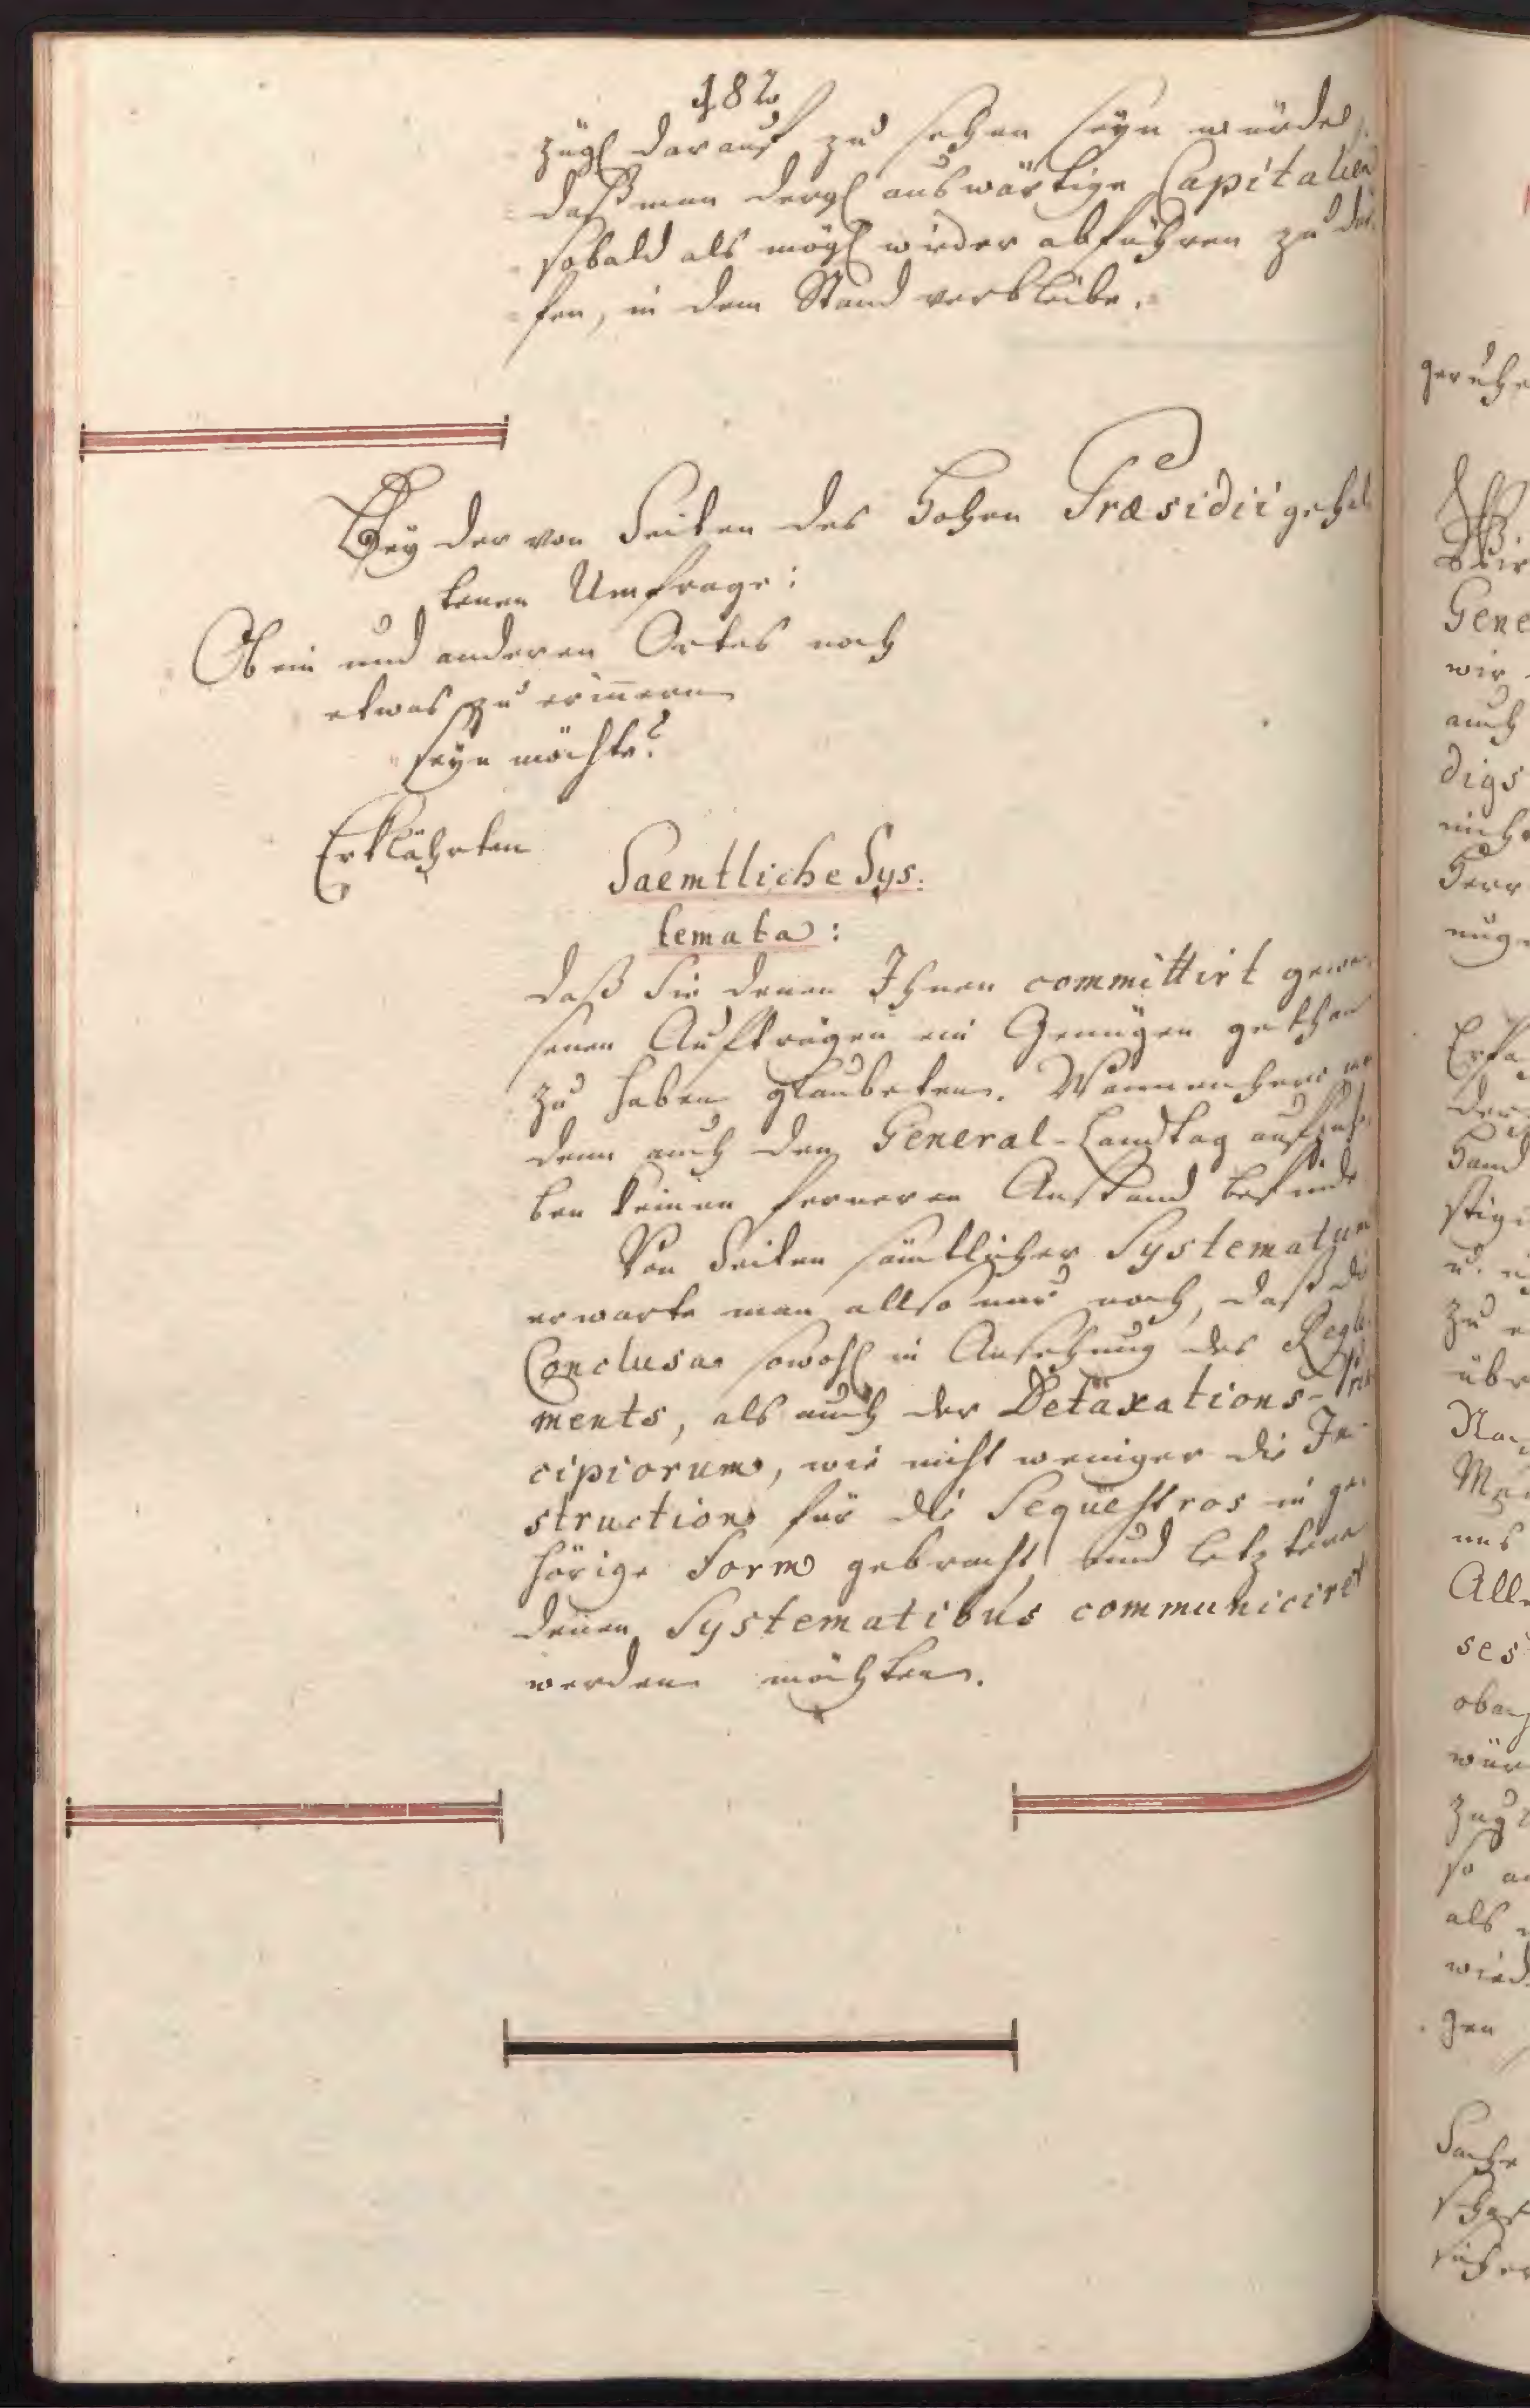 182
zugl darauf zu sehen seyn würde,
daß man dergl auswärtige Capitalien
sobald als mögl wieder abführen zu dür
fen, in dem Stand verbleibe.
Bey der von Seiten des Hohen Præsidii gehal
tenen Umfrage:
Ob ein und anderen Ortes noch
etwas zu erinnern
seyn möchte?
Erklährten
Saemtliche Sys:
temata:
daß Sie denen Ihnen committirt gewe
senen Aufträgen ein Genügen gethan
zu haben glaubeten. Wannenhero
denn auch den General-Landtag aufzuhe
ben keinen ferneren Anstand befinde
Von Seiten sämtlicher Systematum
erwarte man allso nur noch, daß die
Conclusa sowohl in Ansehung des Regle
ments, als auch der Detaxations-Prin
cipiorum, wie nicht weniger die In
struction für die Sequestros in ge
hörige Form gebracht, und letztere
denen Systematibus communiciret
werden möchten.
geruhe
Wir
Gene
wir
auch
digs
nich
Herr
nug
Erfa
der
Hand
stig
u.
zu
übr
Na
uns
All
ses
oban
wür
zug
so
als
wied
gen
Sache